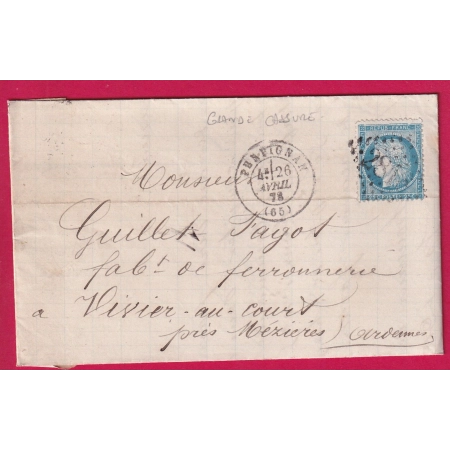 GRANDE CASSURE
REPUB. FRANC.
PERPIGNAN
4E 26
AVRIL
73
(65)
Monsieur
Guillet Fagot
fabt. de ferronnerie
a Vivier-au-court
près Mezières) Ardennes